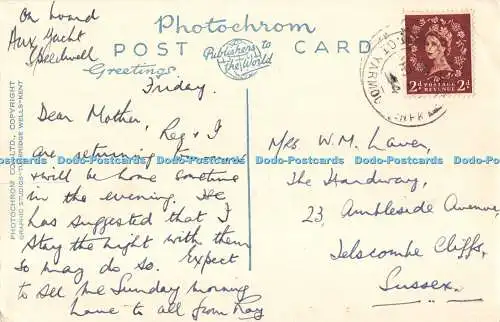 On board
Aux Yacht
Speedwell
Photochrom
POST CARD
Publishers to
the World
Greetings
PHOTOCHROM CO., LTD., COPYRIGHT
GRAPHIC STUDIOS - TUNBRIDGE WELLS - KENT
YARMOU
2d POSTAGE REVENUE 2d
Friday.
Dear Mother,
Reg & I
are returning tomorrow
& will be home sometime
in the evening. He
has suggested that I
stay the night with them
so may do so. Expect
to see me Sunday morning
Love to all from Ray
Mrs W.M. Laver,
The Hardway,
23, Ambleside Avenue,
Telscombe Cliffs,
Sussex.
Dodo-Postcards Dodo-Postcards Dodo-Postcards Dodo-Postcards Dodo-Postcards Dodo-Postcards